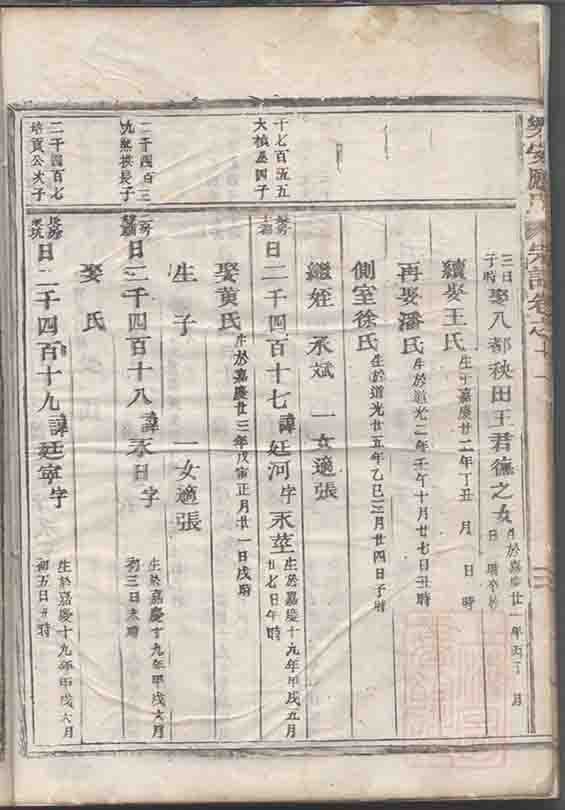 宗譜卷之十一
三日子時娶八都秋田王君德之女生於嘉慶廿一年丙子 月 日 時卒於
續娶王氏生于嘉慶廿二年丁丑 月 日 時
再娶潘氏生於道光二年壬午十月廿七日丑時
側室徐氏生於道光廿五年乙巳三月廿四日子時
繼姪永斌 一女適張
十七百五五大楨公四子
日二千四百十七諱廷河字永莖生於嘉慶十九年甲戌五月廿七日午時
娶黃氏生於嘉慶廿三年戊寅正月廿一日戌時
生子 一女適張
二千四百三九 長子
二房 日二千四百十八諱永日字 生於嘉慶十九年甲戌六月初三日未時
娶氏
二千四百七 培貢公次子
長房 日二千四百十九諱廷寧字 生於嘉慶十九年甲戌六月初五日 時